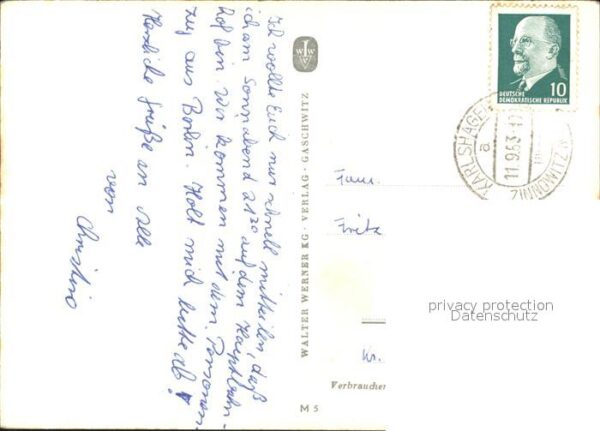 Ich wollte Euch nur schnell mitteilen, daß
ich am Sonnabend 21²⁰ auf dem Hauptbahn-
hof bin. Wir kommen mit dem Personen-
zug aus Berlin. Holt mich bitte ab!
Herzliche Grüße an alle
von
WALTER WERNER KG · VERLAG · GASCHWITZ
M 5
10
DEUTSCHE
DEMOKRATISCHE REPUBLIK
KARLSHAGEN
a
11.9.63
Fam.
Fritz
Kr.
Verbraucher
privacy protection
Datenschutz